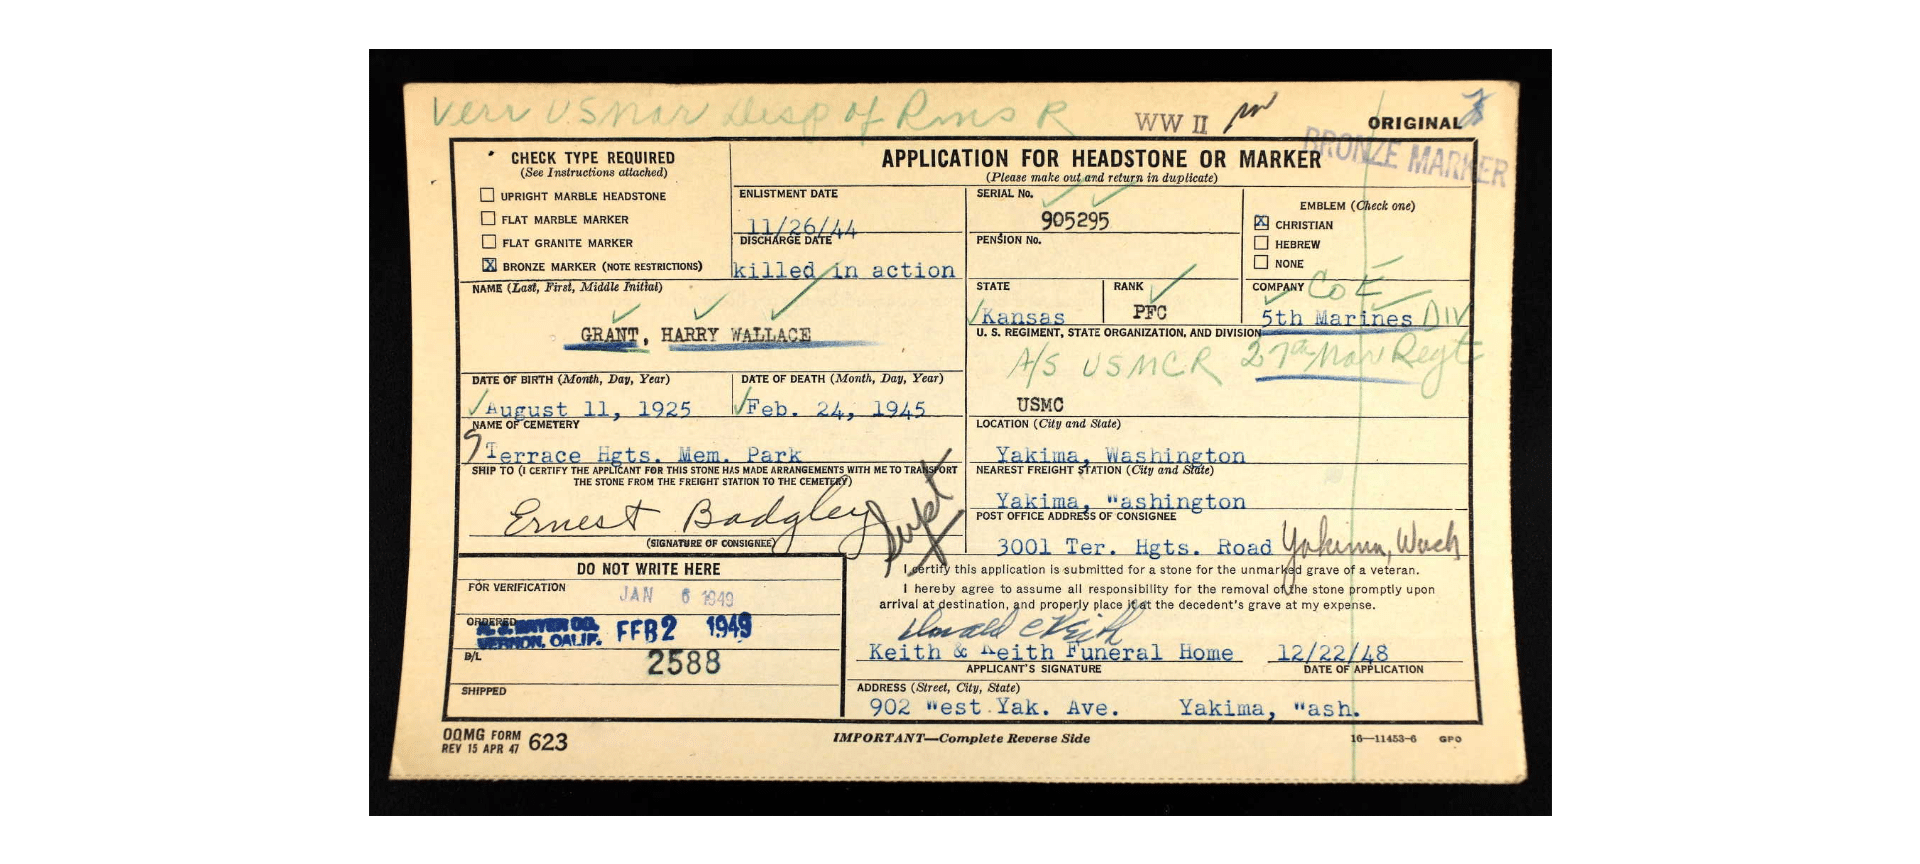 Verr USMar Desp of Rms R
WW II
ORIGINAL
BRONZE MARKER
CHECK TYPE REQUIRED
(See Instructions attached)
UPRIGHT MARBLE HEADSTONE
FLAT MARBLE MARKER
FLAT GRANITE MARKER
X BRONZE MARKER (NOTE RESTRICTIONS)
APPLICATION FOR HEADSTONE OR MARKER
(Please make out and return in duplicate)
ENLISTMENT DATE
11/26/44
DISCHARGE DATE
killed in action
SERIAL No.
905295
PENSION No.
EMBLEM (Check one)
X CHRISTIAN
HEBREW
NONE
NAME (Last, First, Middle Initial)
GRANT, HARRY WALLACE
STATE
Kansas
RANK
PFC
COMPANY Co E
5th Marines DIV
U. S. REGIMENT, STATE ORGANIZATION, AND DIVISION
A/S USMCR 27th Mar Regt
USMC
DATE OF BIRTH (Month, Day, Year)
August 11, 1925
DATE OF DEATH (Month, Day, Year)
Feb. 24, 1945
NAME OF CEMETERY
Terrace Hgts. Mem. Park
LOCATION (City and State)
Yakima, Washington
SHIP TO (I CERTIFY THE APPLICANT FOR THIS STONE HAS MADE ARRANGEMENTS WITH ME TO TRANSPORT
THE STONE FROM THE FREIGHT STATION TO THE CEMETERY)
Ernest Badgley Supt
(SIGNATURE OF CONSIGNEE)
NEAREST FREIGHT STATION (City and State)
Yakima, Washington
POST OFFICE ADDRESS OF CONSIGNEE
3001 Ter. Hgts. Road Yakima, Wash
DO NOT WRITE HERE
FOR VERIFICATION
JAN 6 1949
ORDERED
VERNON, CALIF. FEB 2 1949
B/L
2588
SHIPPED
I certify this application is submitted for a stone for the unmarked grave of a veteran.
I hereby agree to assume all responsibility for the removal of the stone promptly upon
arrival at destination, and properly place it at the decedent's grave at my expense.
Donald C Keith
Keith & Keith Funeral Home 12/22/48
APPLICANT'S SIGNATURE
DATE OF APPLICATION
ADDRESS (Street, City, State)
902 West Yak. Ave. Yakima, Wash.
OQMG FORM
REV 15 APR 47 623
IMPORTANT—Complete Reverse Side
16—11453-6 GPO